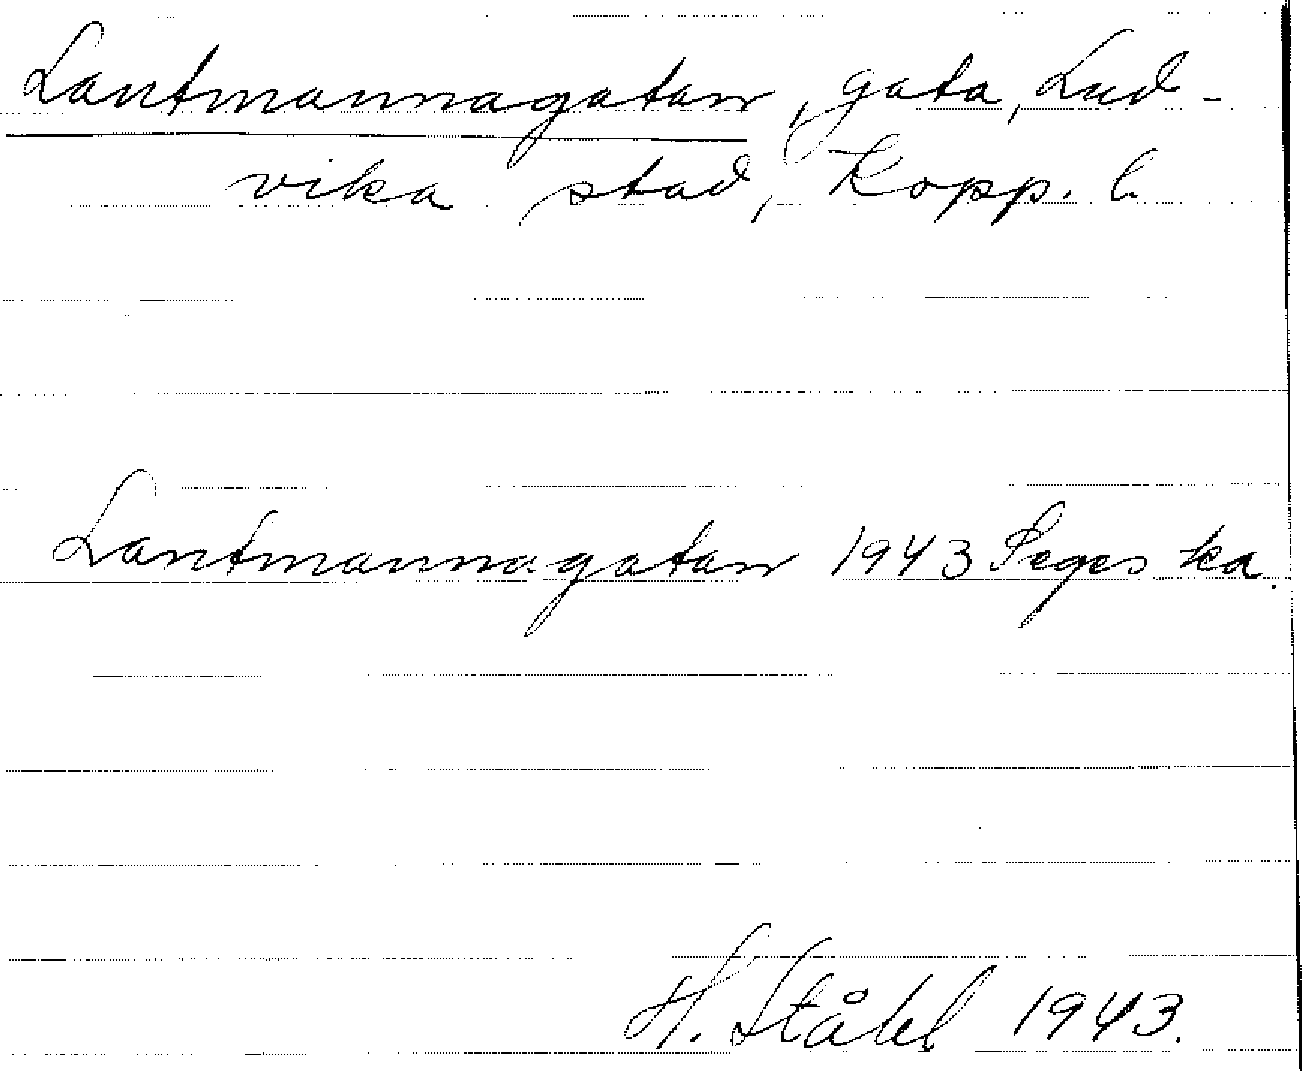 Lantmannagatan, gata, Lud-
vika stad, Kopp. l.
Lantmannagatan 1943 Seges ka.
H. Ståhl 1943.